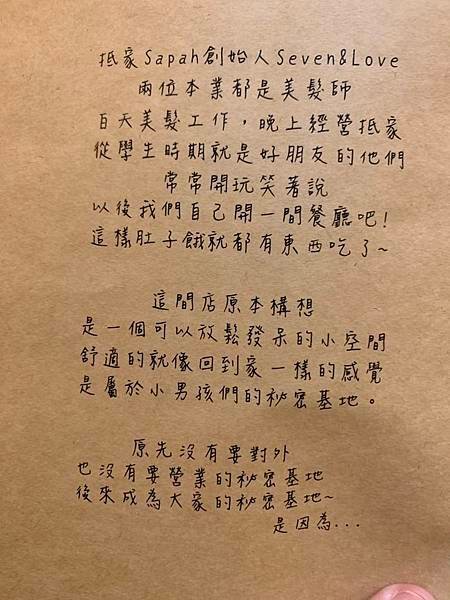 抵家Sapah創始人Seven&Love
兩位本業都是美髮師
白天美髮工作，晚上經營抵家
從學生時期就是好朋友的他們
常常開玩笑著說
以後我們自己開一間餐廳吧!
這樣肚子餓就都有東西吃了~
這間店原本構想
是一個可以放鬆發呆的小空間
舒適的就像回到家一樣的感覺
是屬於小男孩們的祕密基地。
原先沒有要對外
也沒有要營業的祕密基地
後來成為大家的祕密基地~
是因為...